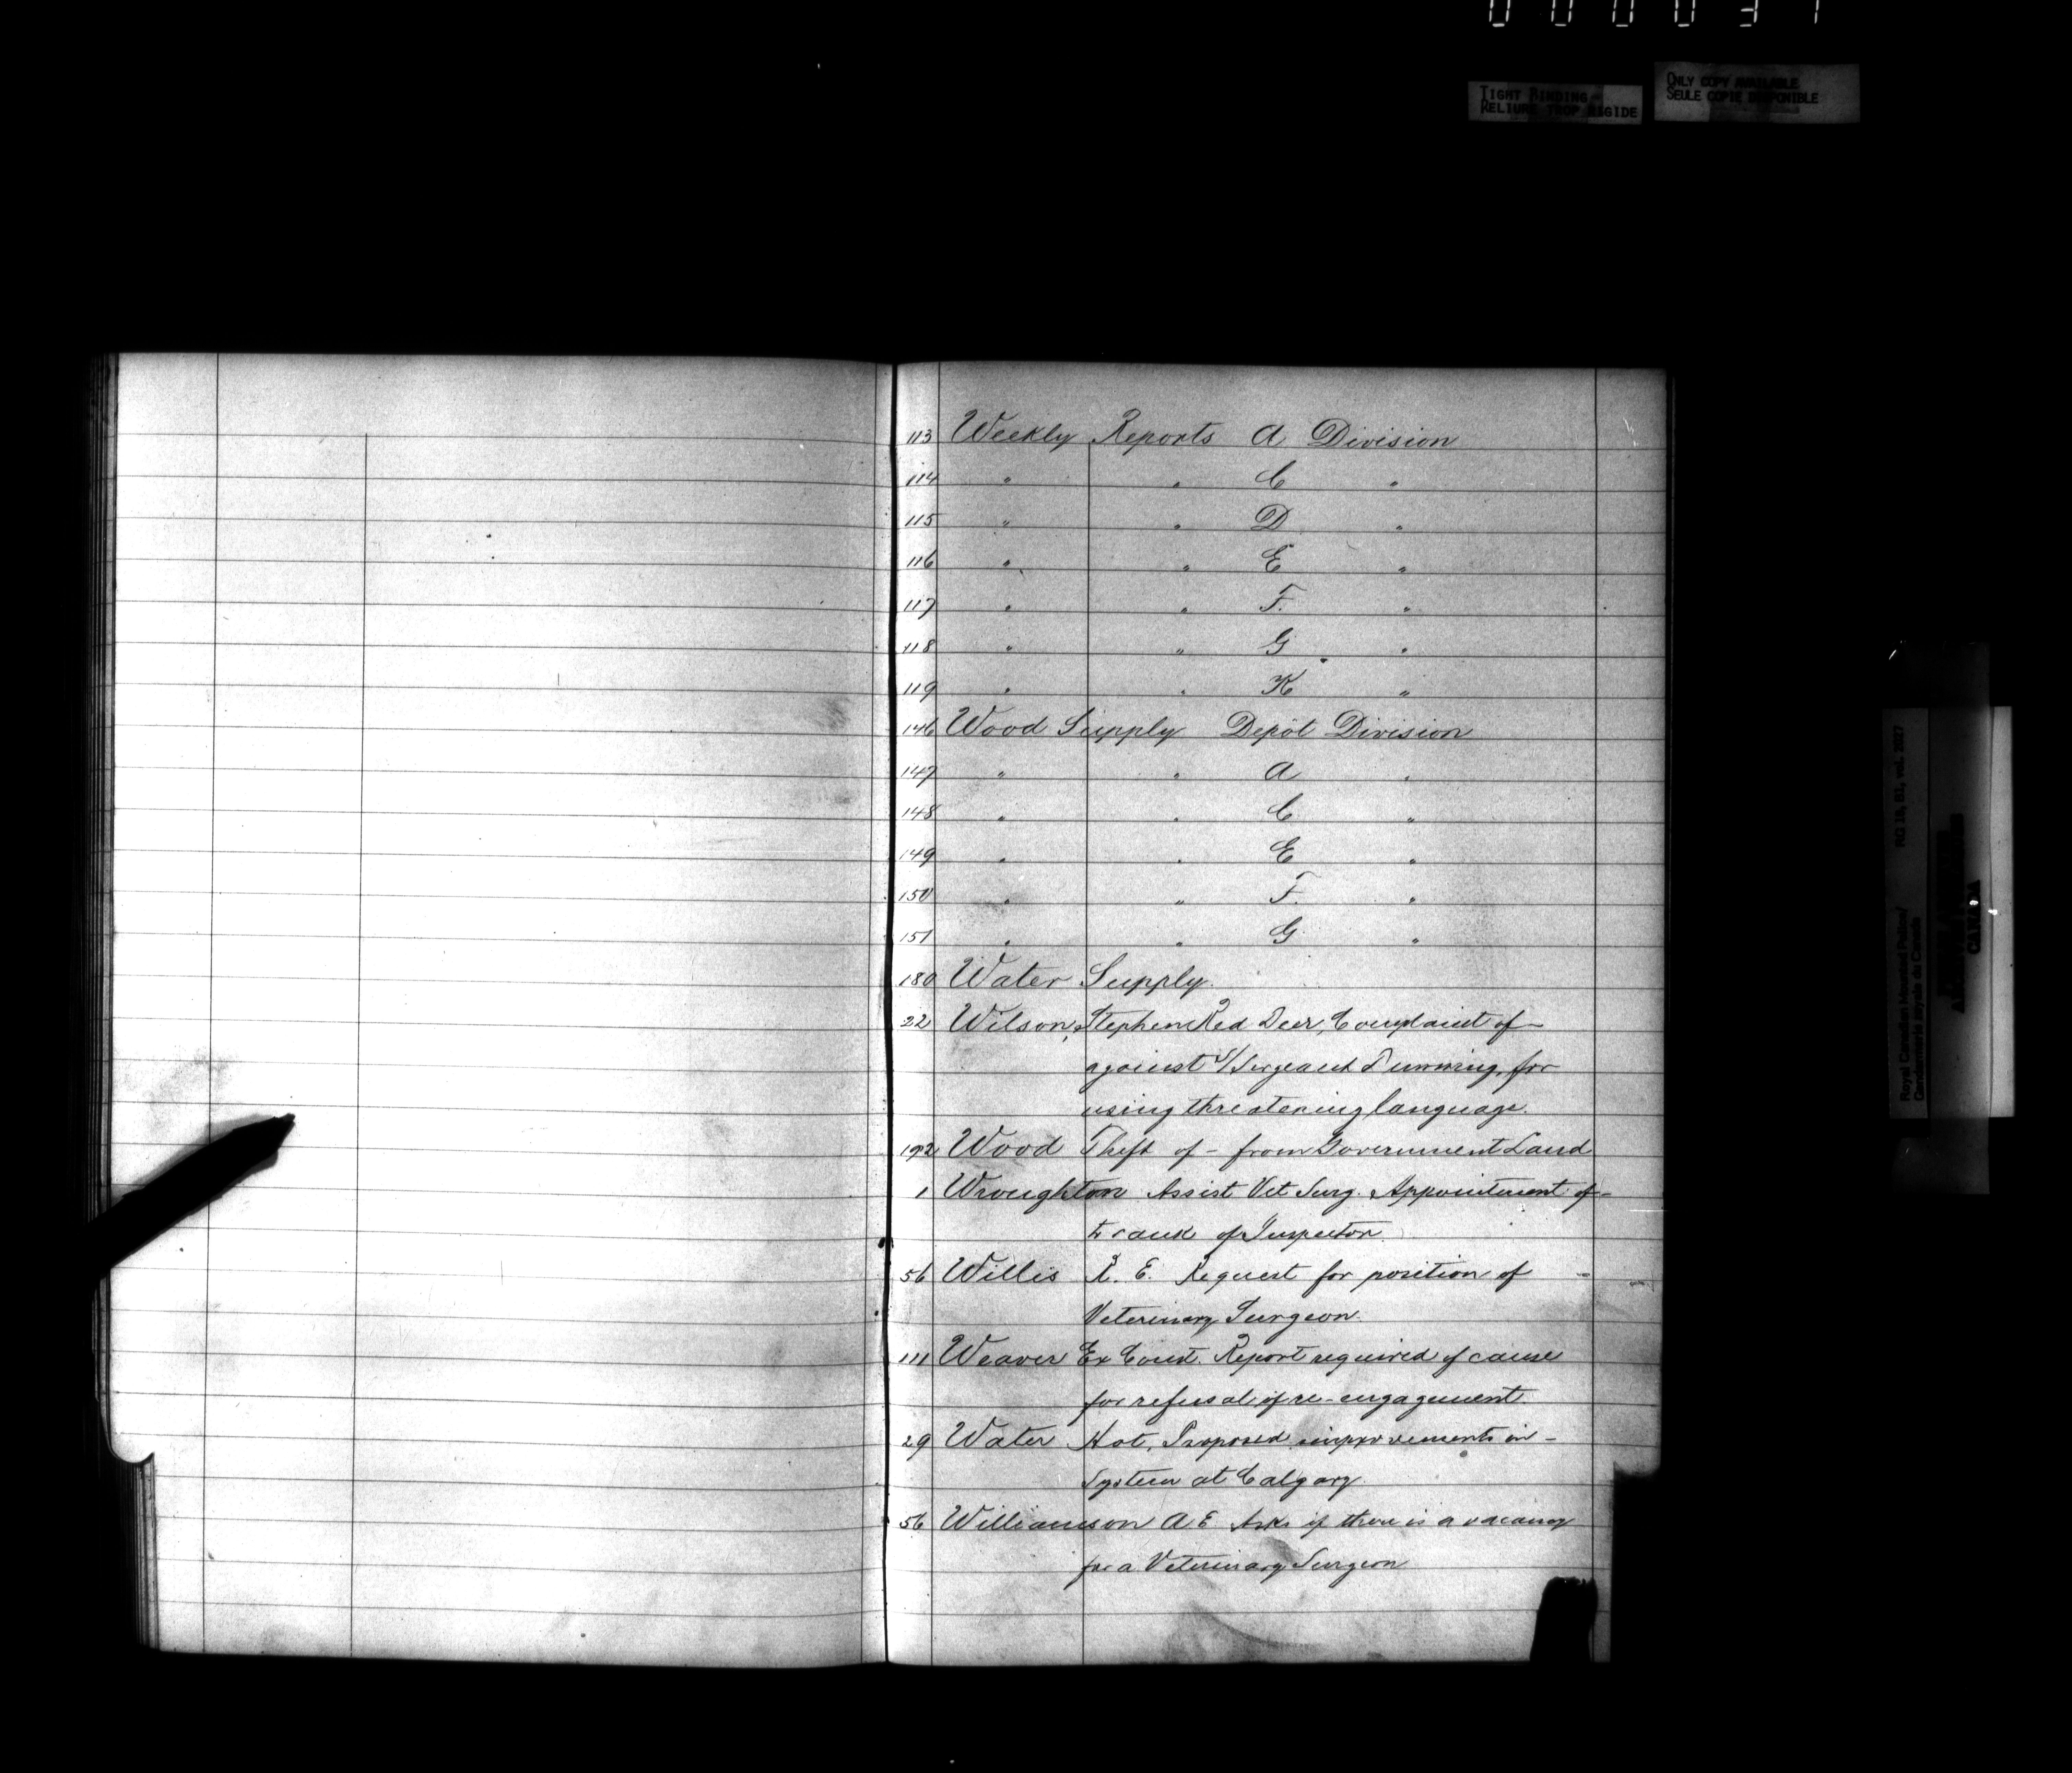 000031
TIGHT BINDING
RELIURE TROP RIGIDE
ONLY COPY AVAILABLE
SEULE COPIE DISPONIBLE
113 Weekly Reports A Division
114 " " C "
115 " " D "
116 " " E "
117 " " F. "
118 " " G "
119 " " K "
146 Wood Supply Depôt Division
147 " " A "
148 " " C "
149 " " E "
150 " " F. "
151 " " G "
180 Water Supply.
22 Wilson, Stephen Red Deer, Complaint of -
against S/Sergeant Dunning, for
using threatening language.
192 Wood Theft of - from Government Land
1 Wroughton Assist Vet Surg. Appointment of -
to rank of Inspector.
56 Willis R. E. Request for position of -
Veterinary Surgeon.
111 Weaver Ex Const. Report required of cause
for refusal of re-engagement.
29 Water Hot, Proposed improvements in -
System at Calgary.
56 Williamson A E Asks if there is a vacancy
for a Veterinary Surgeon
Royal Canadian Mounted Police/
Gendarmerie royale du Canada
RG 18, B1, vol. 2027
CANADA